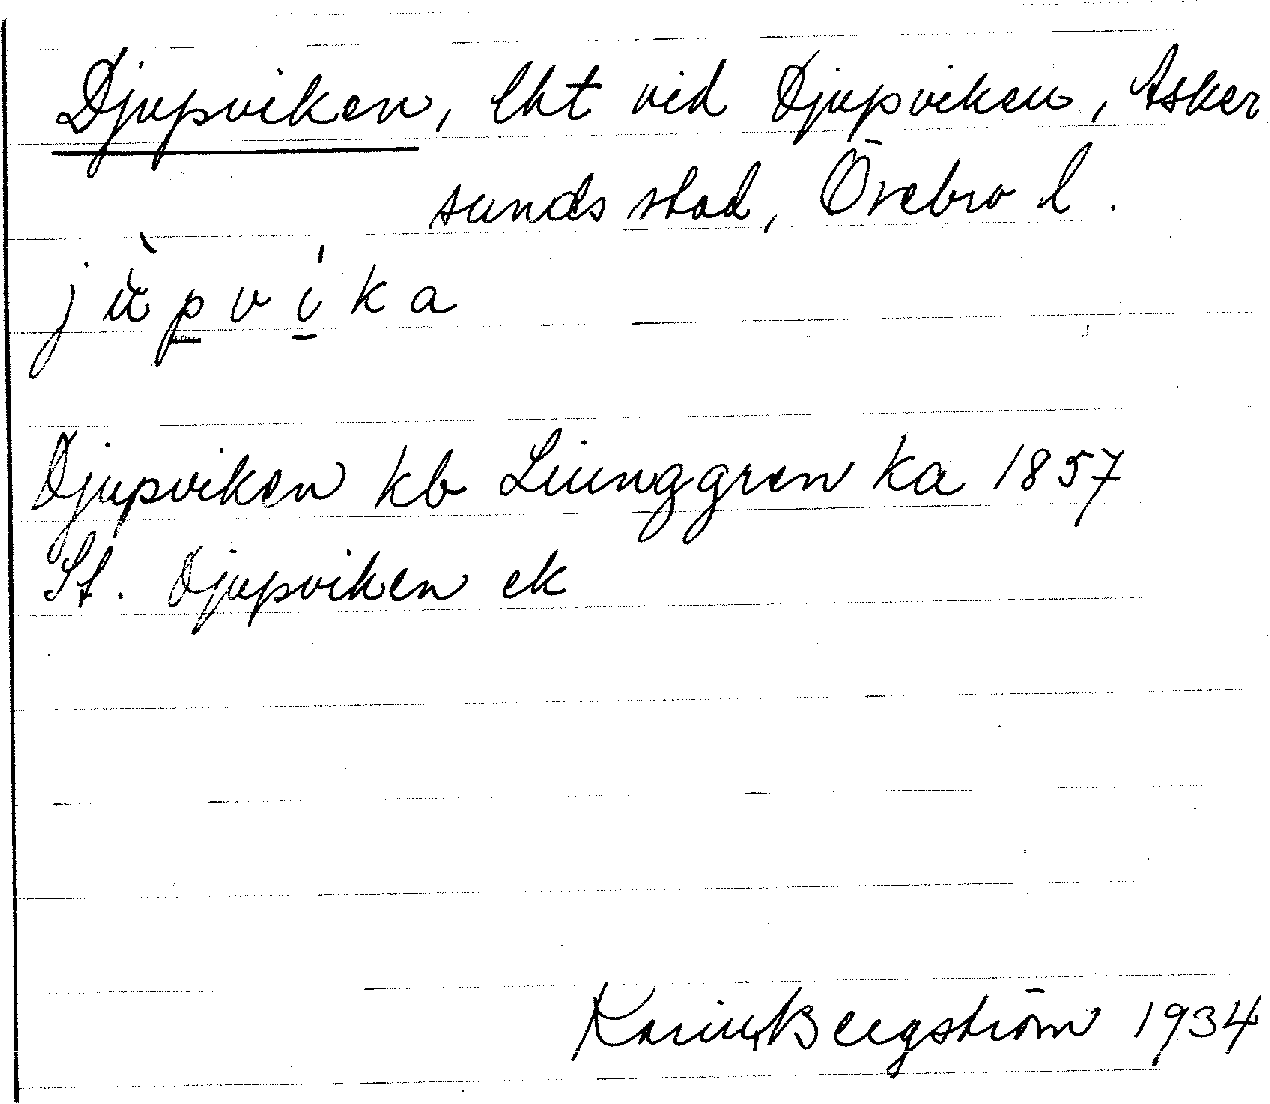 Djupviken, lht vid Djupviken, Asker
sunds stad, Örebro l.
jùpvíka
Djupviken kb Liunggren ka 1857
St. Djupviken ek
Karin Bergström 1934